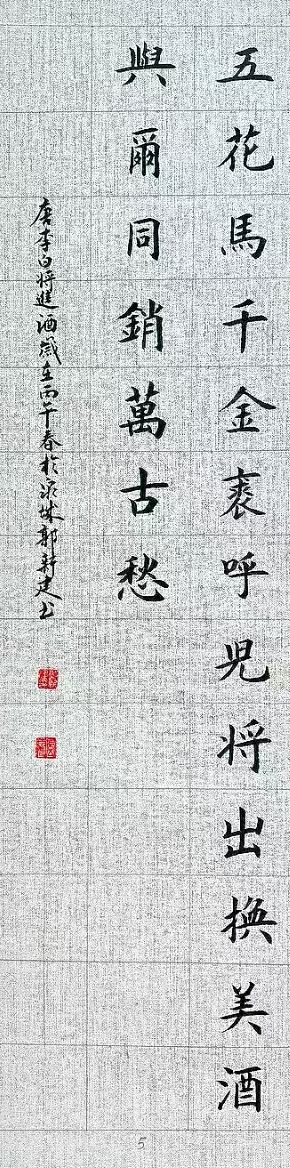 五花馬千金裘呼児将出換美酒
與爾同銷萬古愁
唐李白将進酒歲在丙午春於泉城郭新建书
5